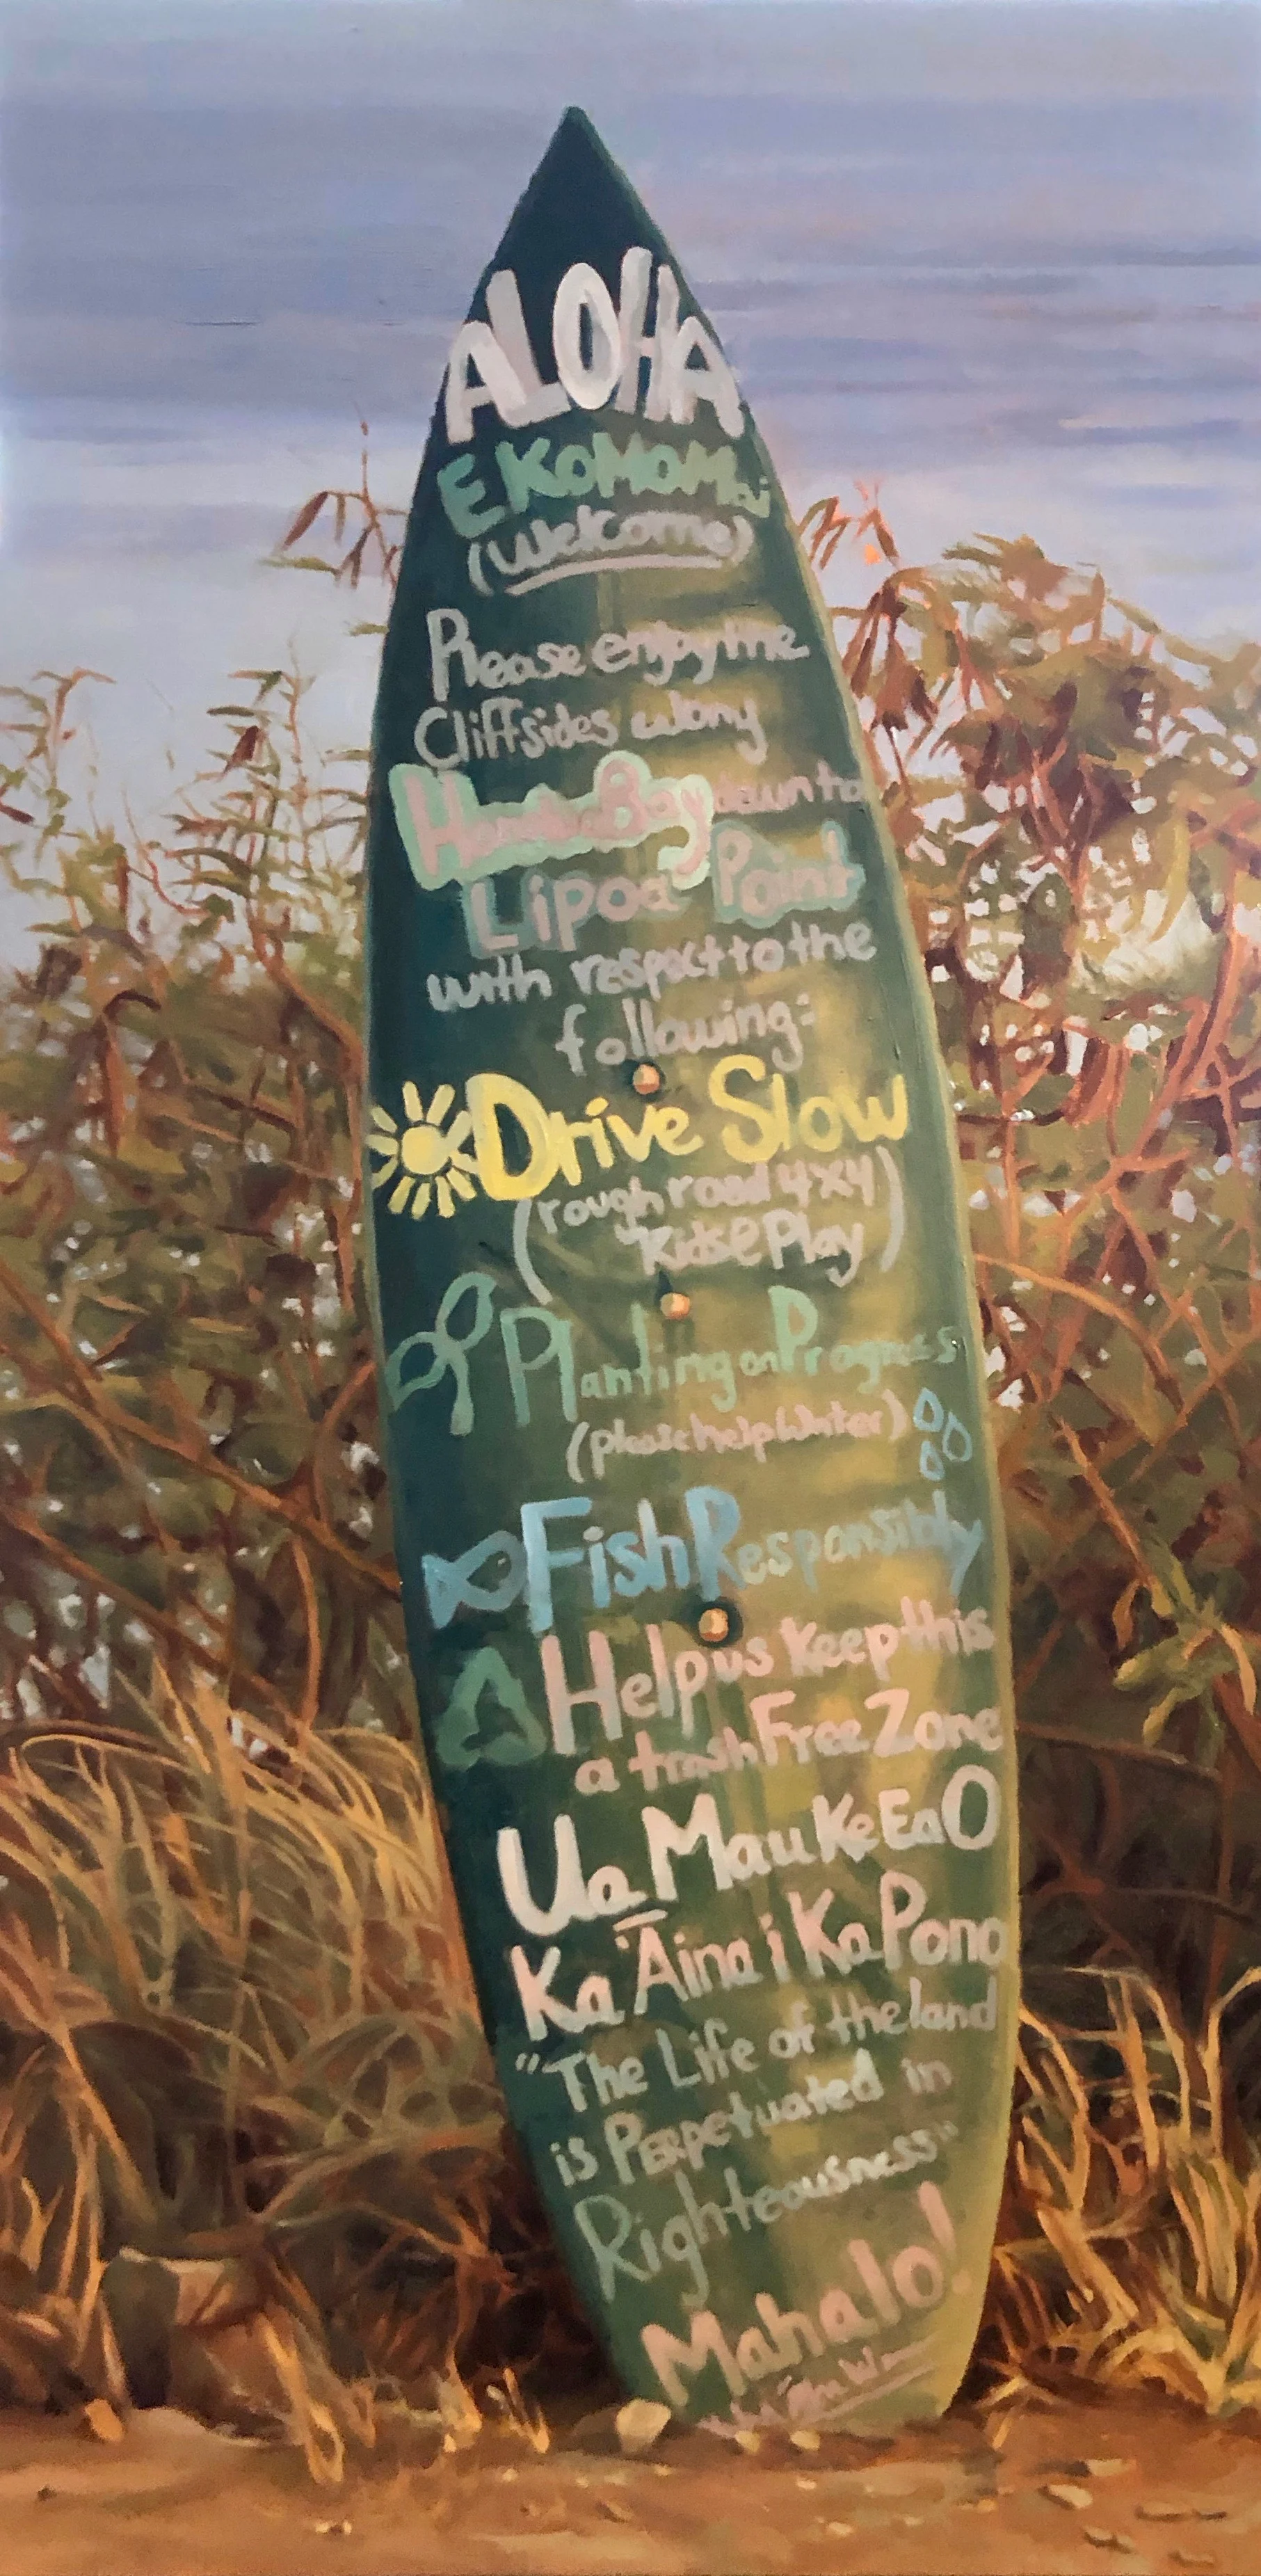 ALOHA
E KOMO Mai
(Welcome)
Please enjoy the
Cliffsides along
Bay down to
Lipoa Point
with respect to the
following:
Drive Slow
(rough road 4x4)
Kids@Play)
Planting on Progress
(please help Water)
Fish Responsibly
Help us Keep this
a trash Free Zone
Ua Mau Ke Ea O
Ka 'Āina i Ka Pono
"The Life of the land
is Perpetuated in
Righteousness"
Mahalo!